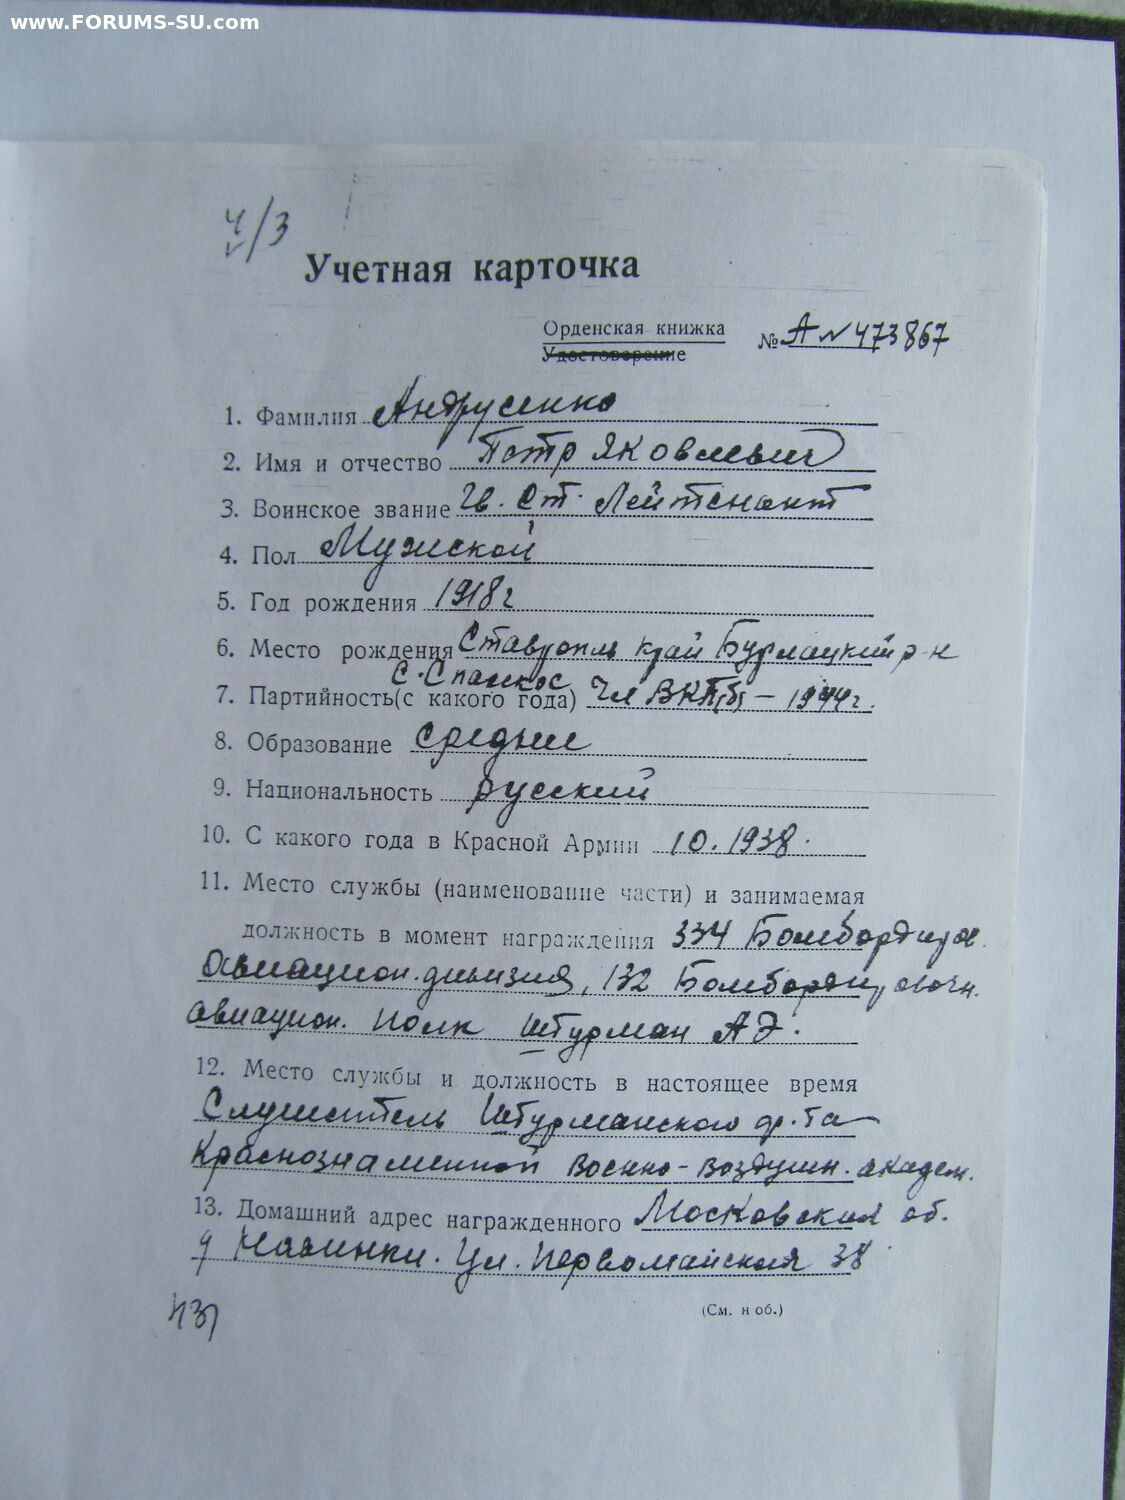 www.FORUMS-SU.com
4/3
Учетная карточка
Орденская книжка № А № 473867
Удостоверение
1. Фамилия Андрусенко
2. Имя и отчество Петр Яковлевич
3. Воинское звание Гв. Ст. Лейтенант
4. Пол Мужской
5. Год рождения 1918 г
6. Место рождения Ставропль край Бурлацкий р-н
с.Спасское
7. Партийность(с какого года) Чл ВКП(б) – 1944 г.
8. Образование среднее
9. Национальность русский
10. С какого года в Красной Армии 10.1938.
11. Место службы (наименование части) и занимаемая
должность в момент награждения 334 Бомбардиров.
Авиацион. дивизия, 132 Бомбардировочн.
авиацион. полк штурман АЭ.
12. Место службы и должность в настоящее время
Слушатель Штурманского ф-та
Краснознаменной военно-воздушн. академ.
13. Домашний адрес награжденного Московская об.
Ул. Первомайская 38
(См. н об.)